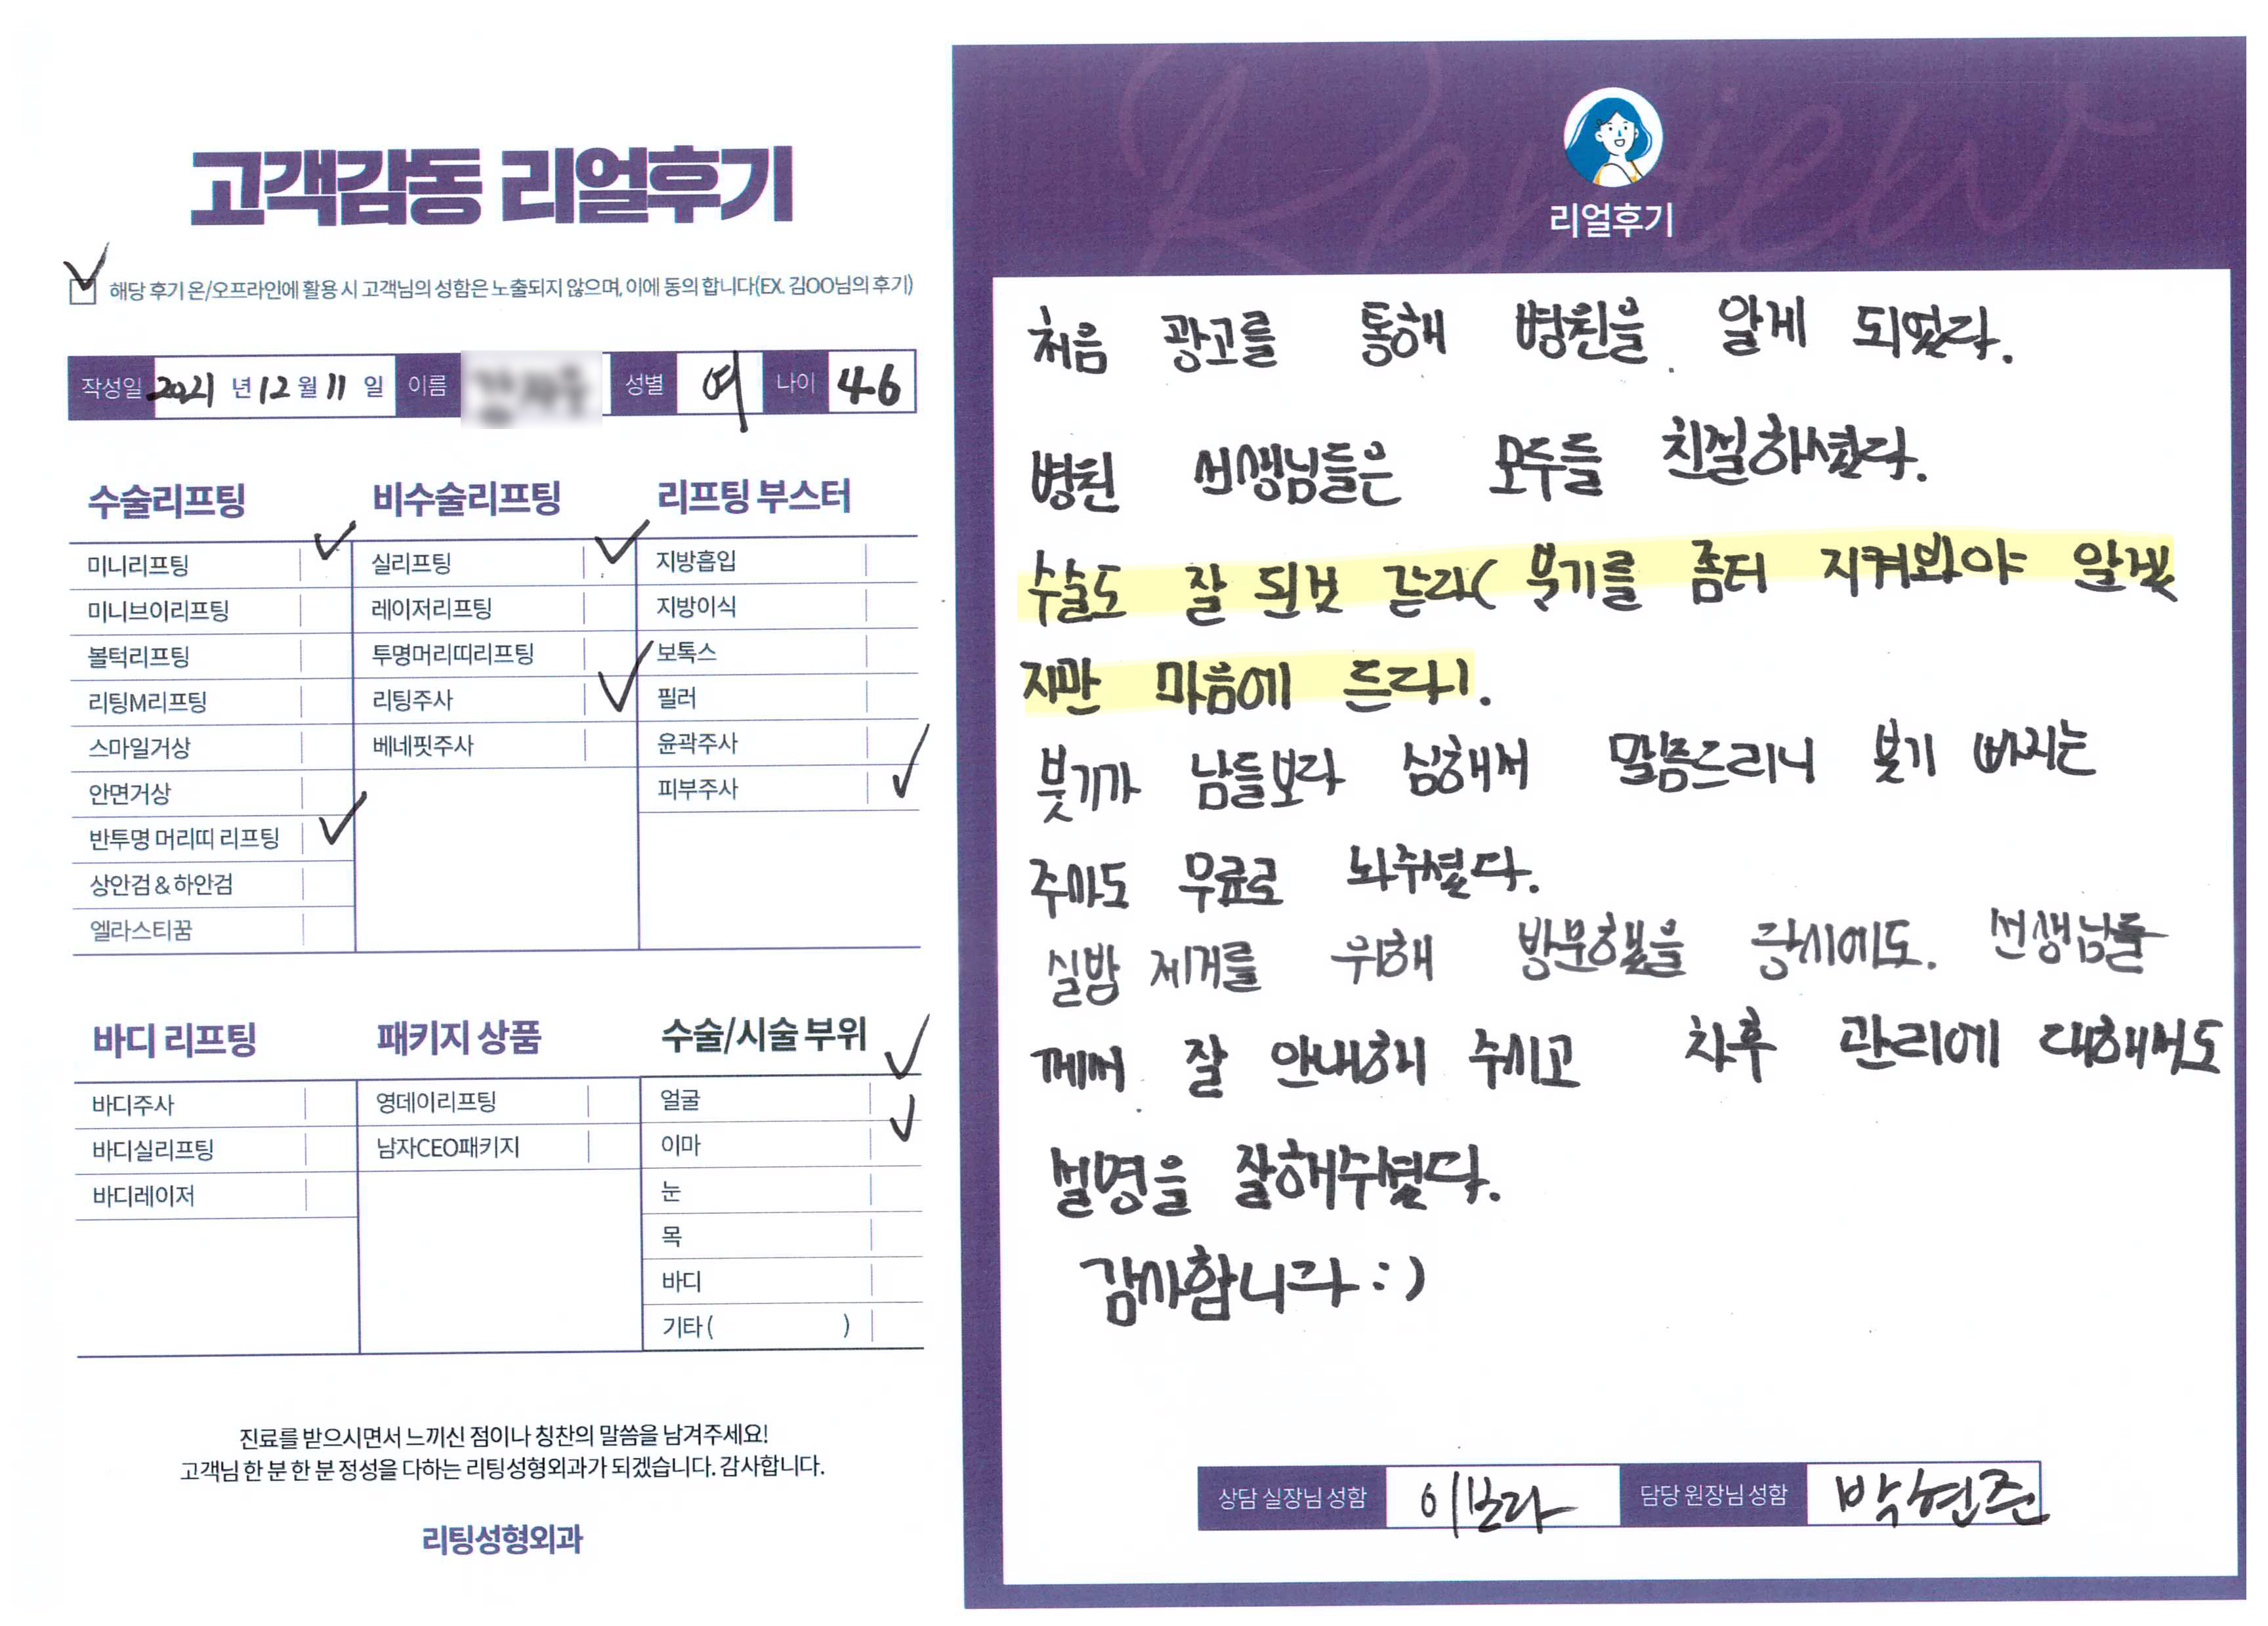 고객감동 리얼후기
해당 후기 온/오프라인에 활용 시 고객님의 성함은 노출되지 않으며, 이에 동의 합니다(EX. 김OO님의 후기)
작성일 2021 년 12 월 11 일 이름 성별 여 나이 46
수술리프팅
미니리프팅
미니브이리프팅
볼턱리프팅
리팅M리프팅
스마일거상
안면거상
반투명 머리띠 리프팅
상안검 & 하안검
엘라스티꿈
비수술리프팅
실리프팅
레이저리프팅
투명머리띠리프팅
리팅주사
베네핏주사
리프팅 부스터
지방흡입
지방이식
보톡스
필러
윤곽주사
피부주사
바디 리프팅
바디주사
바디실리프팅
바디레이저
패키지 상품
영데이리프팅
남자CEO패키지
수술/시술 부위
얼굴
이마
눈
목
바디
기타 ( )
진료를 받으시면서 느끼신 점이나 칭찬의 말씀을 남겨주세요!
고객님 한 분 한 분 정성을 다하는 리팅성형외과가 되겠습니다. 감사합니다.
리팅성형외과
Review
리얼후기
처음 광고를 통해 병원을 알게 되었다.
병원 선생님들은 모두들 친절하셨다.
수술도 잘 된것 같다( 붓기를 좀더 지켜봐야 알겠
지만 마음에 든다).
붓기가 남들보다 심해서 말씀드리니 붓기 빠지는
주사도 무료로 놔주셨다.
실밥 제거를 위해 방문했을 당시에도. 선생님들
께서 잘 안내해 주시고 차후 관리에 대해서도
설명을 잘해주셨다.
감사합니다 : )
상담 실장님 성함 이보라 담당 원장님 성함 박현준